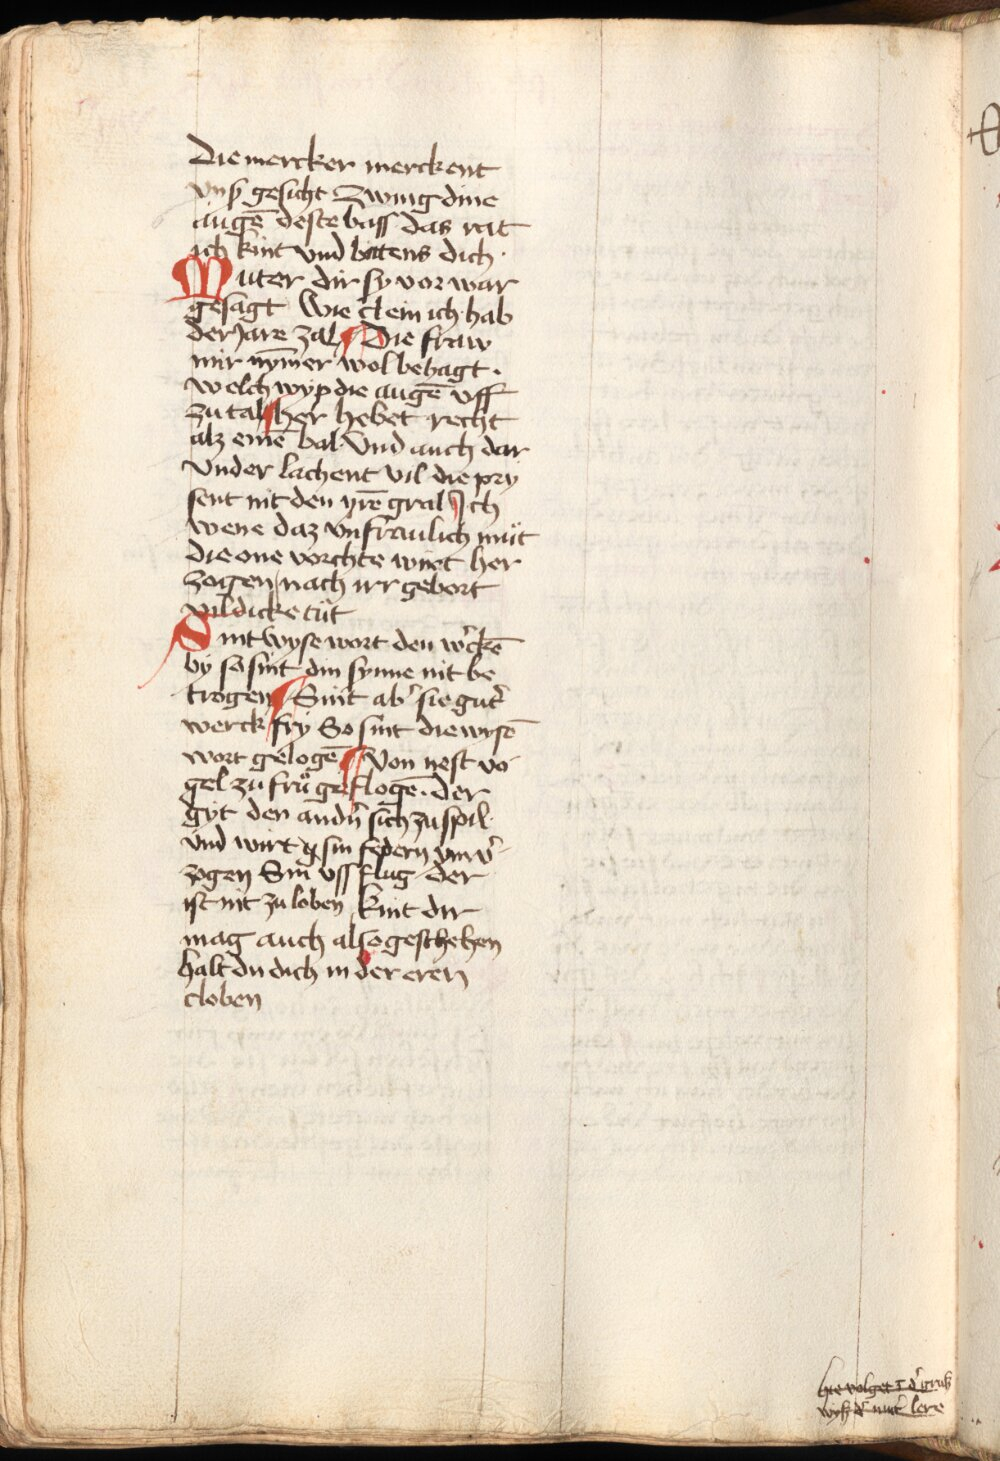 Die mercker merckent
vnß gesicht Zwing dine
augē deste bass das rat
ich kint vnd bittens dich ·
Muter dir sy vor war
gesagt Wie clein ich hab
der Jare zal Die fraw
mir nȳmer wol behagt ·
welch wyp die augē vff
zu tal her hebet recht
alz einē bal Vnd auch dar
vnder lachent vil die pry
sent nit den yrē gral Ich
wene daz vnfraulich müt
die one vorchte wirt her
zogen nach irr gebort
vil dicke tüt
Sint wyse wort den w̛ckē
by so sint din synne nit be
trogen Sint ab̛ sie gut̛
werck fry So sint die wysē
wort gelogē Von nest vo
gel zu frü geflogē · der
gyt den andn̄ sich zu spil
vnd wirt sin federn vnv̛
zogen Sin vss flug der
ist nit zu loben kint dir
mag auch also geschehen
halt du dich in der eren
cloben
hie volget d̛
wyß d̛ mut̛ lere